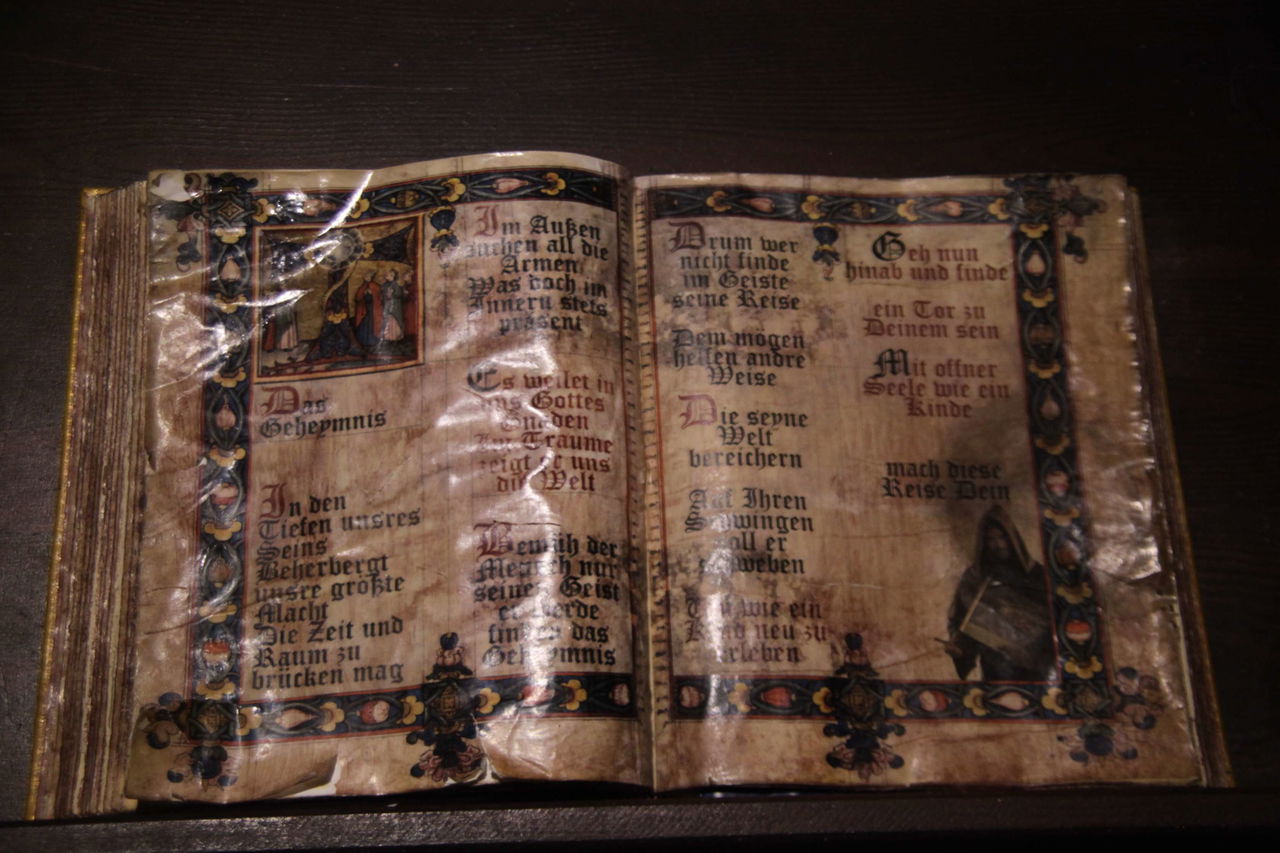 Das
Geheymnis
In den
Tiefen unsres
Seins
Beherbergt
unsre größte
Macht
Die Zeit und
Raum zu
brücken mag
Im Außen
suchen all die
Armen
Was doch im
Innern stets
präsent
Es weilet in
uns Gottes
Gnaden
Im Traume
zeigt er uns
die Welt
Bemüh der
Mensch nur
seinen Geist
er werde
finden das
Geheymnis
Drum wer
nicht finde
im Geiste
seine Reise
Dem mögen
helfen andre
Weise
Die seyne
Welt
bereichern
Auf Ihren
Schwingen
soll er
schweben
wie ein
Kind neu zu
erleben
Geh nun
hinab und finde
ein Tor zu
Deinem sein
Mit offner
Seele wie ein
Kinde
mach diese
Reise Dein